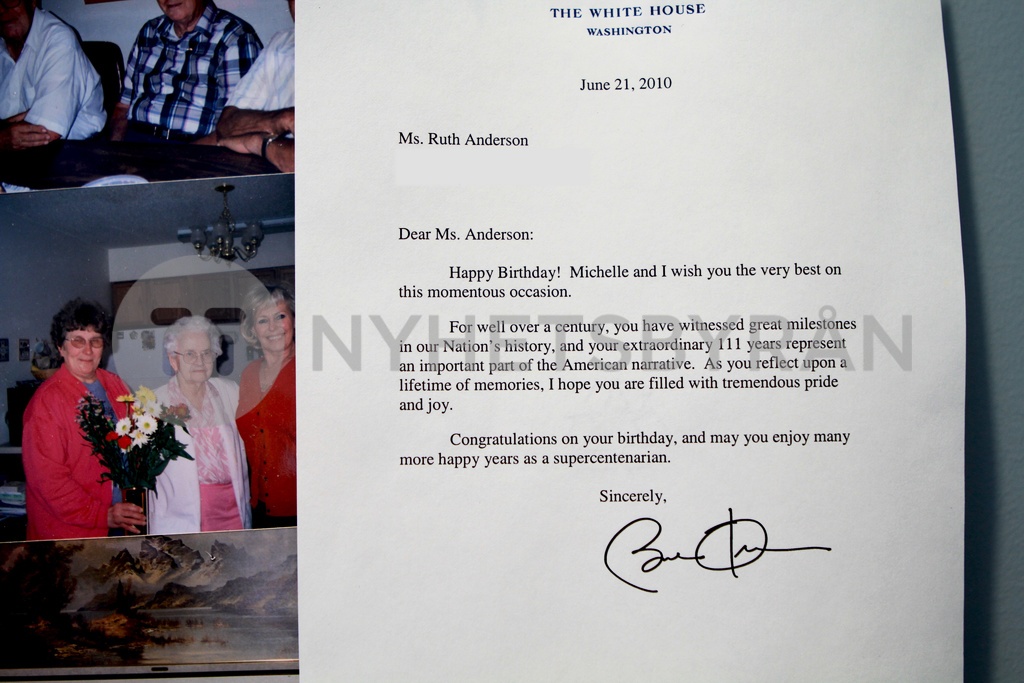 THE WHITE HOUSE
WASHINGTON
June 21, 2010
Ms. Ruth Anderson
Dear Ms. Anderson:
Happy Birthday! Michelle and I wish you the very best on
this momentous occasion.
For well over a century, you have witnessed great milestones
in our Nation's history, and your extraordinary 111 years represent
an important part of the American narrative. As you reflect upon a
lifetime of memories, I hope you are filled with tremendous pride
and joy.
Congratulations on your birthday, and may you enjoy many
more happy years as a supercentenarian.
Sincerely,
NYHETSBYRÅN